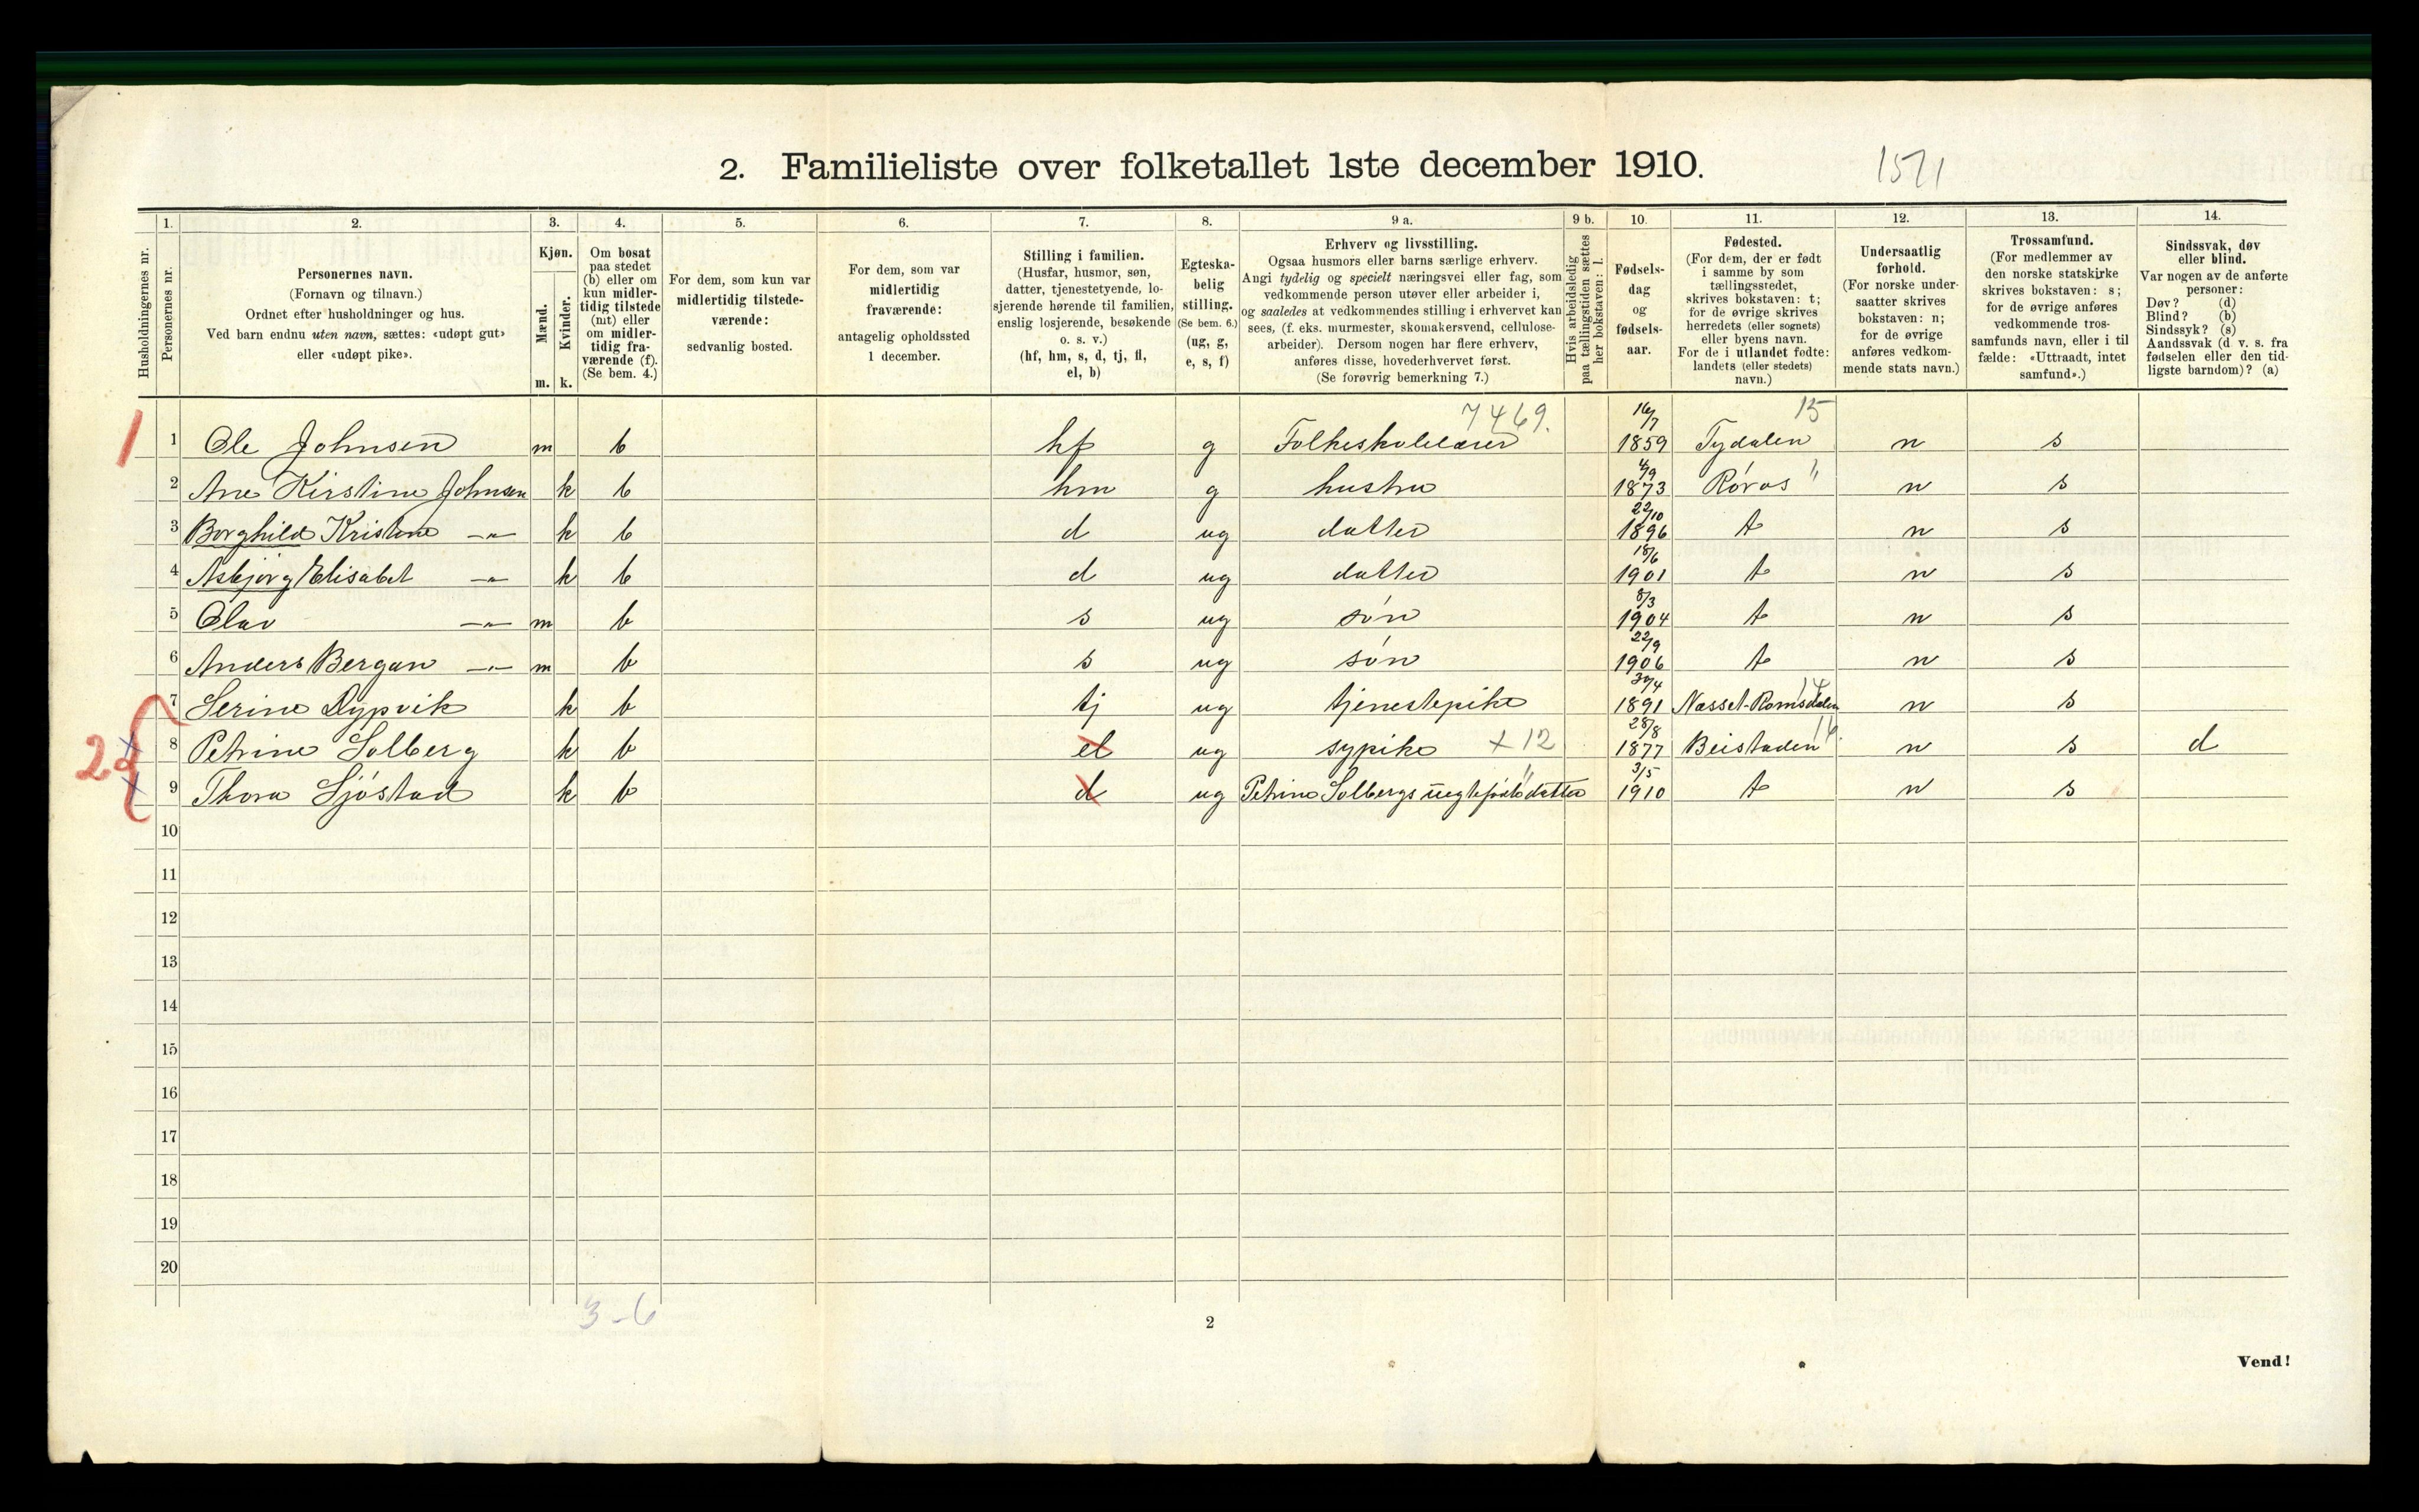 2. Familieliste over folketallet 1ste december 1910.
1571
1. 2. 3. 4. 5. 6. 7. 8. 9 a. 9 b. 10. 11. 12. 13. 14.
Husholdningernes nr.
Personernes nr.
Personernes navn.
(Fornavn og tilnavn.)
Ordnet efter husholdninger og hus.
Ved barn endnu uten navn, sættes: «udøpt gut»
eller «udøpt pike».
Kjøn.
Mænd.
Kvinder.
m. k.
Om bosat
paa stedet
(b) eller om
kun midler-
tidig tilstede
(mt) eller
om midler-
tidig fra-
værende (f).
(Se bem. 4.)
For dem, som kun var
midlertidig tilstede-
værende:
sedvanlig bosted.
For dem, som var
midlertidig
fraværende:
antagelig opholdssted
1 december.
Stilling i familien.
(Husfar, husmor, søn,
datter, tjenestetyende, lo-
sjerende hørende til familien,
enslig losjerende, besøkende
o. s. v.)
(hf, hm, s, d, tj, fl,
el, b)
Egteska-
belig
stilling.
(Se bem. 6.)
(ug, g,
e, s, f)
Erhverv og livsstilling.
Ogsaa husmors eller barns særlige erhverv.
Angi tydelig og specielt næringsvei eller fag, som
vedkommende person utøver eller arbeider i,
og saaledes at vedkommendes stilling i erhvervet kan
sees, (f. eks. murmester, skomakersvend, cellulose-
arbeider). Dersom nogen har flere erhverv,
anføres disse, hovederhvervet først.
(Se forøvrig bemerkning 7.)
Hvis arbeidsledig
paa tællingstiden sættes
her bokstaven: l.
Fødsels-
dag
og
fødsels-
aar.
Fødested.
(For dem, der er født
i samme by som
tællingsstedet,
skrives bokstaven: t;
for de øvrige skrives
herredets (eller sognets)
eller byens navn.
For de i utlandet fødte:
landets (eller stedets)
navn.)
Undersaatlig
forhold.
(For norske under-
saatter skrives
bokstaven: n;
for de øvrige
anføres vedkom-
mende stats navn.)
Trossamfund.
(For medlemmer av
den norske statskirke
skrives bokstaven: s;
for de øvrige anføres
vedkommende tros-
samfunds navn, eller i til
fælde: «Uttraadt, intet
samfund».)
Sindssvak, døv
eller blind.
Var nogen av de anførte
personer:
Døv? (d)
Blind? (b)
Sindssyk? (s)
Aandssvak (d v. s. fra
fødselen eller den tid-
ligste barndom)? (a)
7469. 16/7 15
1 1 Ole Johnsen m b hf g Folkeskolelærer 1859 Tydalen n s
4/9 "
2 Ane Kirstine Johnsen k b hm g hustru 1873 Røros n s
22/10
3 Borghild Kristine —"— k b d ug datter 1896 t n s
18/6
4 Asbjørg Elisabet —"— k b d ug datter 1901 t n s
8/3
5 Olav —"— m b s ug søn 1904 t n s
22/9
6 Anders Bergan —"— m b s ug søn 1906 t n s
30/4 14
7 Serine Dypvik k b tj ug tjenestepike 1891 Næsset-Romsdalen n s
28/8 16
2 8 Petrine Solberg k b el ug sypike x 12 1877 Beistaden n s d
3/5
9 Thora Sjøstad k b d ug Petrine Solbergs uegtefødte datter 1910 t n s
10
11
12
13
14
15
16
17
18
19
20
3-6
2
Vend!